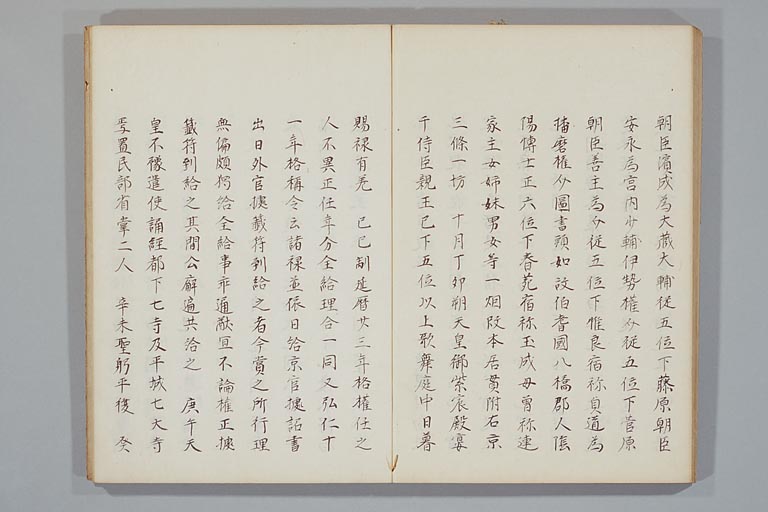 朝臣濱成為大蔵大輔従五位下藤原朝臣
安永為宮内少輔伊勢權介従五位下菅原
朝臣善主為介従五位下惟良宿祢貞道為
播磨權介圖書頭如故伯耆國八橋郡人陰
陽博士正六位下春苑宿祢玉成母曽祢連
家主女姉妹男女等一烟改本居貫附右京
三條一坊　十月丁卯朔天皇御紫宸殿宴
于侍臣親王已下五位以上歌舞庭中日暮
賜禄有差　己巳制延暦廿三年格權任之
人不異正任年分全給理合一同又弘仁十
一年格稱令云諸禄並依日給京官據詔書
出日外官據籖符到給之者今賞之所行理
無偏頗何給全給事乖通猷冝不論權正據
籖符到給之其間公廨遍共給之　庚午天
皇不豫遣使誦経都下七寺及平城七大寺
置民部省掌二人　辛未聖躬平復　癸